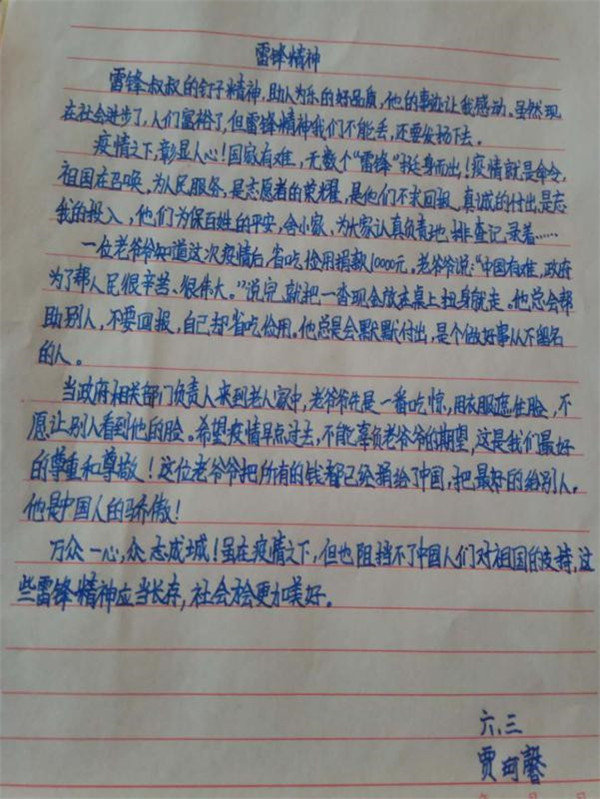 雷锋精神
雷锋叔叔的钉子精神,助人为乐的好品质,他的事迹让我感动。虽然现
在社会进步了,人们富裕了,但雷锋精神我们不能丢,还要发扬下去。
疫情之下,彰显人心!国家有难,无数个“雷锋”挺身而出!疫情就是命令,
祖国在召唤,为人民服务,是志愿者的荣耀,是他们不求回报、真诚的付出,是忘
我的投入,他们为保百姓的平安,舍小家、为大家认真负责地排查记录着……
一位老爷爷知道这次疫情后,省吃俭用捐款10000元。老爷爷说:“中国有难,政府
为了帮人民很辛苦、很伟大。”说完,就把一沓现金放在桌上扭身就走。他总会帮
助别人,不要回报,自己却省吃俭用。他总是会默默付出,是个做好事从不留名
的人。
当政府相关部门负责人来到老人家中,老爷爷先是一番吃惊,用衣服遮住脸,不
愿让别人看到他的脸。希望疫情早点过去,不能辜负老爷爷的期望,这是我们最好
的尊重和尊敬!这位老爷爷把所有的钱都已经捐给了中国,把最好的给别人。
他是中国人的骄傲!
万众一心,众志成城!虽在疫情之下,但也阻挡不了中国人们对祖国的支持,这
些雷锋精神应当长存,社会会更加美好。
六、三
贾珂馨